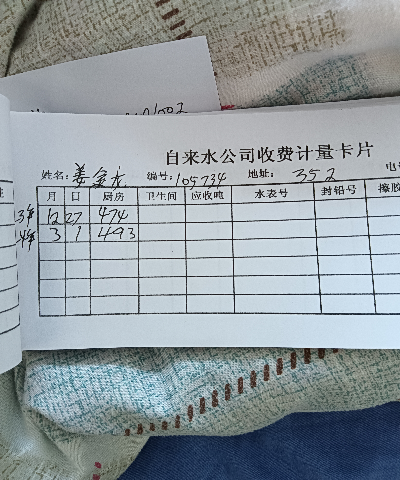 自来水公司收费计量卡片
姓名: 姜金龙 编号: 105734 地址: 352
月 日 厨房 卫生间 应收吨 水表号 封铅号
3年 12 27 474
4年 3 1 493